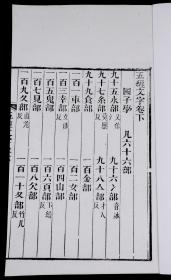 五經文字卷下
國子學 凡六十六部
九十五水部 九十六冫部
九十七糸部 九十八亼部
九十九食部 一百金部
一百一車部 一百二女部
一百三幸部 一百四山部
一百五鬼部 一百六頁部
一百七見部 一百八欠部
一百九夊部 一百一十夂部